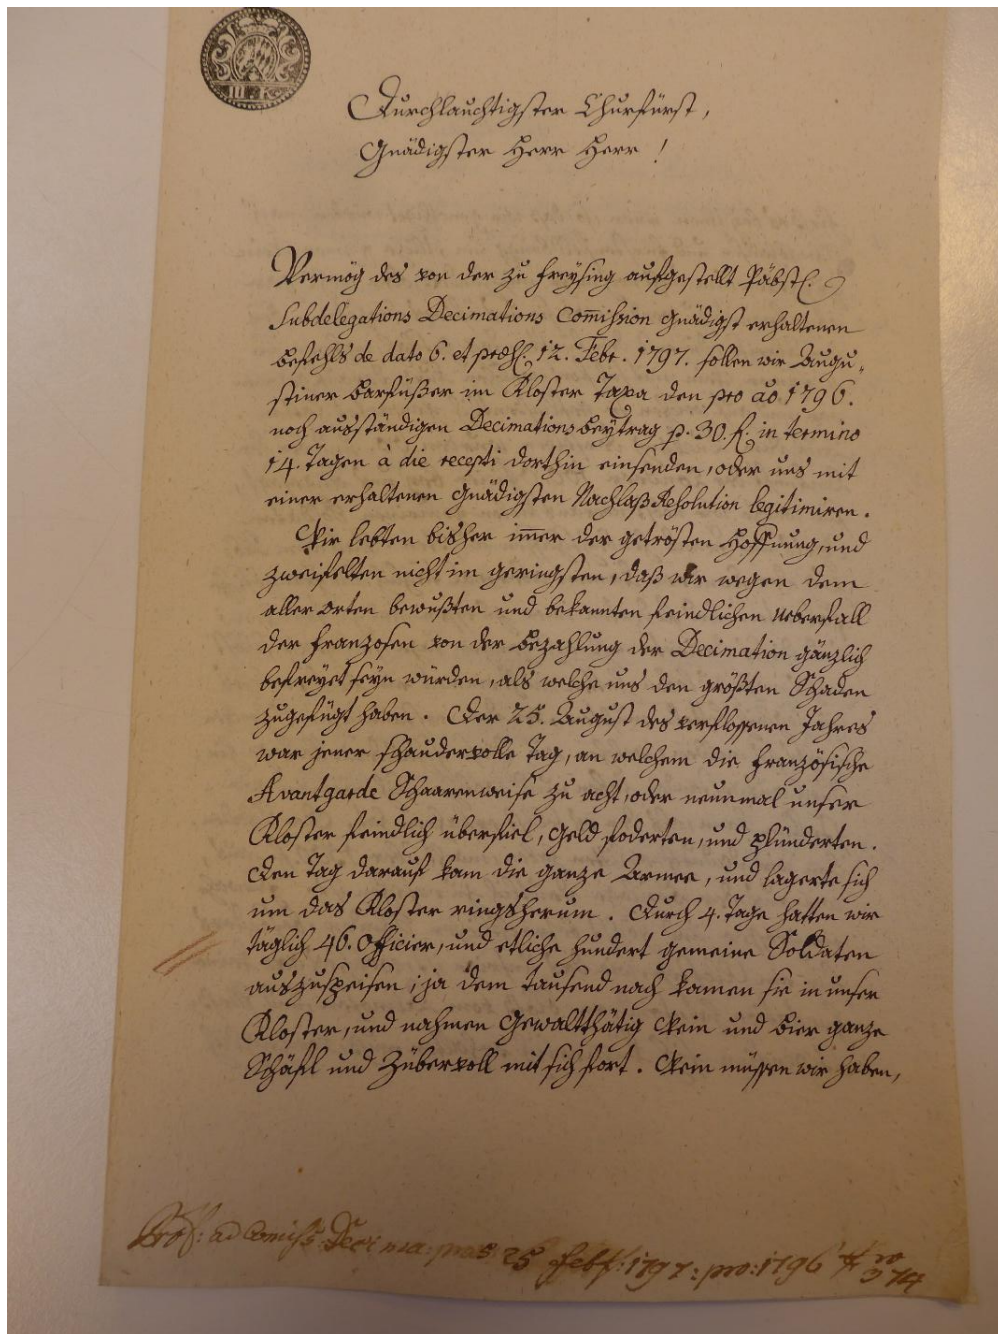 Durchlauchtigster Churfürst,
Gnädigster Herr Herr !
Vermög des von der zu Freysing aufgestellt Päbstl.
Subdelegations Decimations Com̅ission gnädigst erhaltenen
Befehls de dato 6. et præs. 12. Febr. 1797. sollen wir Augu„
stiner Barfüßer im Kloster Taxa den pro ao 1796.
noch ausständigen Decimations Beytrag p. 30. fl. in termino
14. Tagen à die recepti dorthin einsenden, oder uns mit
einer erhaltenen gnädigsten Nachlaß Resolution legitimiren.
Wir lebten bisher im̅er der getrösten Hoffnung, und
zweifelten nicht im geringsten, daß wir wegen dem
aller Orten bewußten und bekannten feindlichen Ueberfall
der Franzosen von der Bezahlung der Decimation gänzlich
befreyet seyn würden, als welche uns den größten Schaden
zugefügt haben. Der 25. August des verflossenen Jahres
war jener schaudervolle Tag, an welchem die Französische
Avantgarde Schaarenweise zu acht, oder neunmal unser
Kloster feindlich überfiel, Geld foderten, und plünderten.
Den Tag darauf kam die ganze Armee, und lagerte sich
um das Kloster ringsherum. Durch 4. Tage hatten wir
täglich 46. Officier, und etliche hundert gemeine Soldaten
auszuspeisen; ja dem Tausend nach kamen sie in unser
Kloster, und nahmen Gewaltthätig Wein und Bier ganze
Schäfl und Züber voll mit sich fort. Wein müssen wir haben,
ad Comiss: Decima: 25 febr: 1797: pro: 1796 No 374